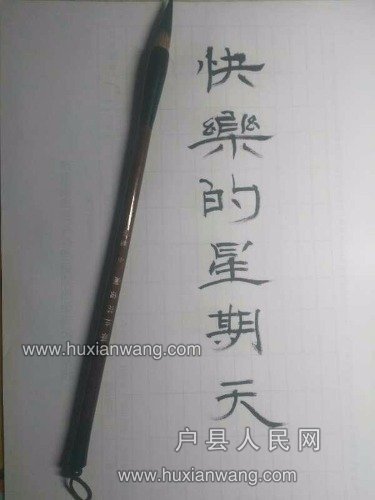 快樂的星期天
www.huxianwang.com
户县人民网
www.huxianwang.com